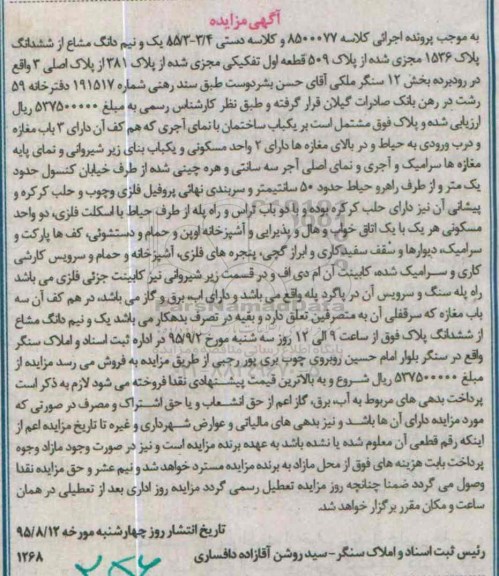 آگهی مزایده
به موجب پرونده اجرائی کلاسه ۸۵۰۰۰۷۷ و کلاسه دستی ۸۵/۳-۳/۴ یک و نیم دانگ مشاع از ششدانگ
پلاک ۱۵۳۶ مجزی شده از پلاک ۵۰۹ قطعه اول تفکیکی مجزی شده از پلاک ۳۸۱ از پلاک اصلی ۳ واقع
در رودبرده بخش ۱۲ سنگر ملکی آقای حسن بشردوست طبق سند رهنی شماره ۱۹۱۵۱۷ دفترخانه ۵۹
رشت در رهن بانک صادرات گیلان قرار گرفته و طبق نظر کارشناس رسمی به مبلغ ۵۳۷۵۰۰۰۰۰ ریال
ارزیابی شده و پلاک فوق مشتمل است بر یکباب ساختمان با نمای آجری که هم کف آن دارای ۳ باب مغازه
و درب ورودی به حیاط و در بالای مغازه ها دارای ۲ واحد مسکونی و یکباب بنای زیر شیروانی و نمای پایه
مغازه ها سرامیک و آجری و نمای اصلی آجر سه سانتی و هره چینی شده از طرف خیابان کنسول حدود
یک متر و از طرف راهرو حیاط حدود ۵۰ سانتیمتر و سربندی نهائی پروفیل فلزی وچوب و حلب کرکره و
پیشانی آن نیز دارای حلب کرکره بوده و با دو باب تراس و راه پله از طرف حیاط با اسکلت فلزی، دو واحد
مسکونی هر یک با یک اتاق خواب و هال و پذیرایی و آشپزخانه اوپن و حمام و دستشوئی، کف ها پارکت و
سرامیک، دیوارها و سقف سفیدکاری و ابزار گچی، پنجره های فلزی، آشپزخانه و حمام و سرویس کارشی
کاری و سرامیک شده، کابینت آن ام دی اف و در قسمت زیر شیروانی نیز کابینت جزئی فلزی می باشد
راه پله سنگ و سرویس آن در پاگرد پله واقع می باشد و دارای اب، برق و گاز می باشد، در هم کف آن سه
باب مغازه که سرقفلی آن به متصرفین تعلق دارد و بقیه در تصرف بدهکار می باشد یک و نیم دانگ مشاع
از ششدانگ پلاک فوق از ساعت ۹ الی ۱۲ روز سه شنبه مورخ ۹۵/۹/۲ در اداره ثبت اسناد و املاک سنگر
واقع در سنگر بلوار امام حسین روبروی چوب بری پور رجبی از طریق مزایده به فروش می رسد مزایده از
مبلغ ۵۳۷۵۰۰۰۰۰ ریال شروع و به بالاترین قیمت پیشنهادی نقدا فروخته می شود لازم به ذکر است
پرداخت بدهی های مربوط به آب، برق، گاز اعم از حق انشعاب و یا حق اشتراک و مصرف در صورتی که
مورد مزایده دارای آن ها باشد و نیز بدهی های مالیاتی و عوارض شهرداری و غیره تا تاریخ مزایده اعم از
اینکه رقم قطعی آن معلوم شده یا نشده باشد به عهده برنده مزایده است و نیز در صورت وجود مازاد وجوه
پرداخت بابت هزینه های فوق از محل مازاد به برنده مزایده مسترد خواهد شد و نیم عشر و حق مزایده نقدا
وصول می گردد ضمنا چنانچه روز مزایده تعطیل رسمی گردد مزایده روز اداری بعد از تعطیلی در همان
ساعت و مکان مقرر برگزار خواهد شد.
تاریخ انتشار روز چهارشنبه مورخه ۹۵/۸/۱۲
رئیس ثبت اسناد و املاک سنگر – سید روشن آقازاده دافساری
۱۲۶۸